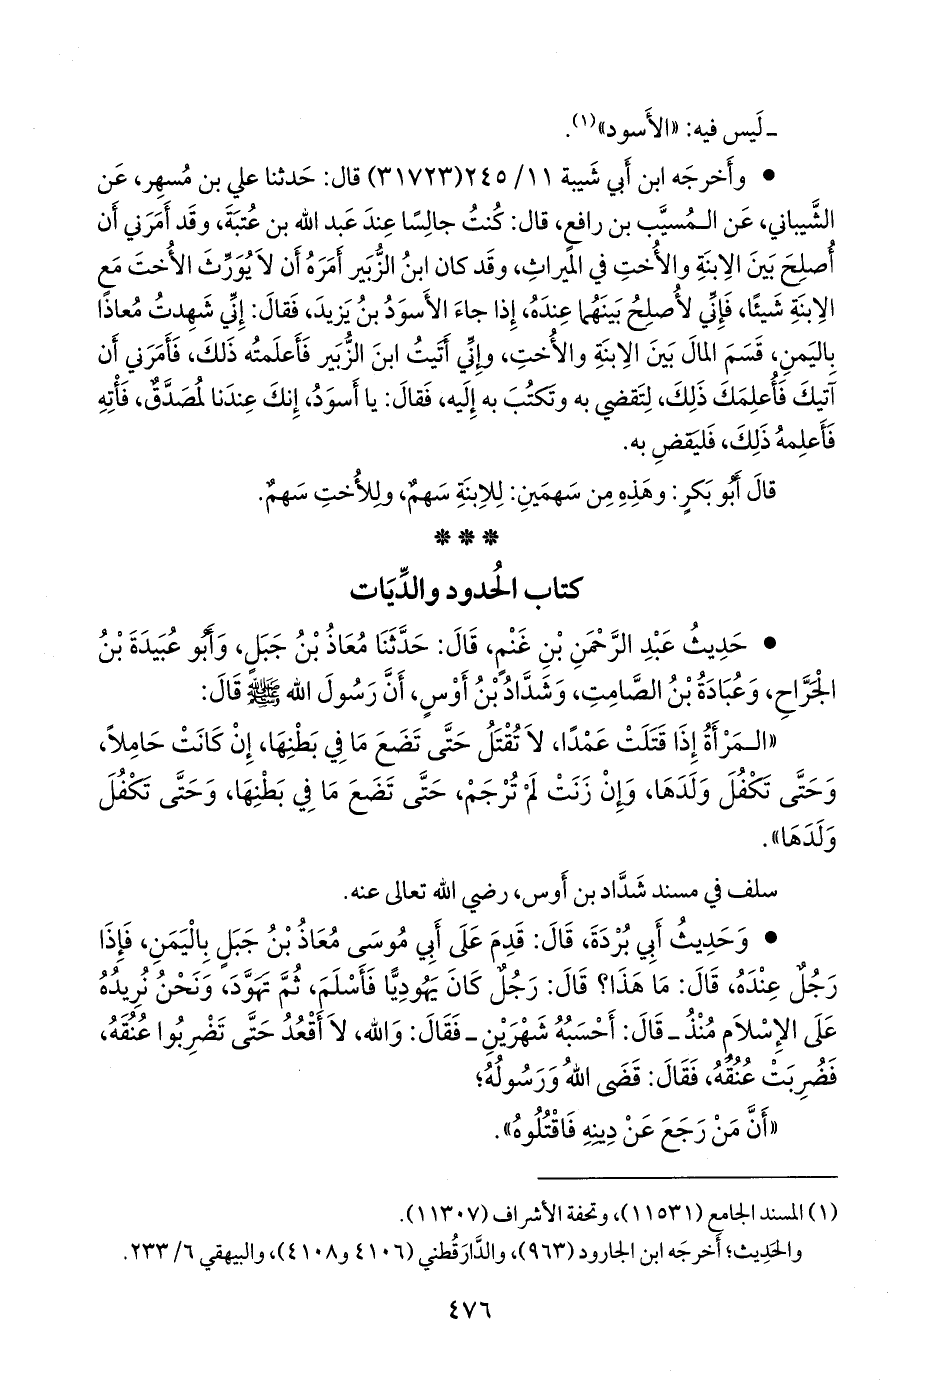 ـ لَيس فيه: «الأَسود»(١).
• وأَخرجَه ابن أَبي شَيبة ١١/ ٢٤٥(٣١٧٢٣) قال: حَدثنا علي بن مُسهِر، عَن
الشَّيباني، عَن الـمُسيَّب بن رافع، قال: كُنتُ جالِسًا عِندَ عَبد الله بن عُتبَةَ، وقَد أَمَرَني أَن
أُصلِحَ بَينَ الاِبنَةِ والأُختِ في المِيراثِ، وقَد كان ابنُ الزُّبَير أَمَرَهُ أَن لاَ يُوَرِّثَ الأُختَ مَع
الاِبنَةِ شَيئًا، فَإِنِّي لأُصلِحُ بَينَهُما عِندَهُ، إِذا جاءَ الأَسوَدُ بنُ يَزيدَ، فَقالَ: إِنِّي شَهِدتُ مُعاذًا
بِاليَمنِ، قَسَمَ المَالَ بَينَ الاِبنَةِ والأُختِ، وإِنِّي أَتَيتُ ابنَ الزُّبَير فَأَعلَمتُه ذَلكَ، فَأَمَرَني أَن
آتيكَ فَأُعلِمَكَ ذَلِكَ، لِتَقضي به وتَكتُبَ به إِلَيه، فَقالَ: يا أَسوَدُ، إِنكَ عِندَنا لمُصَدَّقٌ، فَأْتِهِ
فَأَعلِمهُ ذَلِكَ، فَليَقضِ به.
قالَ أَبُو بَكرٍ: وهَذِهِ مِن سَهمَينِ: لِلاِبنَةِ سَهمٌ، ولِلأُختِ سَهمٌ.
* * *
كتاب الحُدود والدِّيَات
• حَدِيثُ عَبْدِ الرَّحْمَنِ بْنِ غَنْمٍ، قَالَ: حَدَّثَنَا مُعَاذُ بْنُ جَبَلٍ، وَأَبُو عُبَيدَةَ بْنُ
الْجَرَّاحِ، وَعُبَادَةُ بْنُ الصَّامِتِ، وَشَدَّادُ بْنُ أَوْسٍ، أَنَّ رَسُولَ الله ﷺ قَالَ:
«الـمَرْأَةُ إِذَا قَتَلَتْ عَمْدًا، لاَ تُقْتَلُ حَتَّى تَضَعَ مَا فِي بَطْنِهَا، إِنْ كَانَتْ حَامِلاً،
وَحَتَّى تَكْفُلَ وَلَدَهَا، وَإِنْ زَنَتْ لَمْ تُرْجَمْ، حَتَّى تَضَعَ مَا فِي بَطْنِهَا، وَحَتَّى تَكْفُلَ
وَلَدَهَا».
سلف في مسند شَدَّاد بن أَوس، رضي الله تعالى عنه.
• وَحَدِيثُ أَبِي بُرْدَةَ، قَالَ: قَدِمَ عَلَى أَبِي مُوسَى مُعَاذُ بْنُ جَبَلٍ بِالْيَمَنِ، فَإِذَا
رَجُلٌ عِنْدَهُ، قَالَ: مَا هَذَا؟ قَالَ: رَجُلٌ كَانَ يَهُودِيًّا فَأَسْلَمَ، ثُمَّ تَهَوَّدَ، وَنَحْنُ نُرِيدُهُ
عَلَى الإِسْلاَمِ مُنْذُ ـ قَالَ: أَحْسَبُهُ شَهْرَيْنِ ـ فَقَالَ: وَالله، لاَ أَقْعُدُ حَتَّى تَضْرِبُوا عُنُقَهُ،
فَضُرِبَتْ عُنُقُهُ، فَقَالَ: قَضَى اللهُ وَرَسُولُهُ؛
«أَنَّ مَنْ رَجَعَ عَنْ دِينِهِ فَاقْتُلُوهُ».
(١) المسند الجامع (١١٥٣١)، وتحفة الأشراف (١١٣٠٧).
والحَدِيث؛ أَخرجَه ابن الجارود (٩٦٣)، والدَّارَقُطني (٤١٠٦ و٤١٠٨)، والبيهقي ٦/ ٢٣٣.
٤٧٦